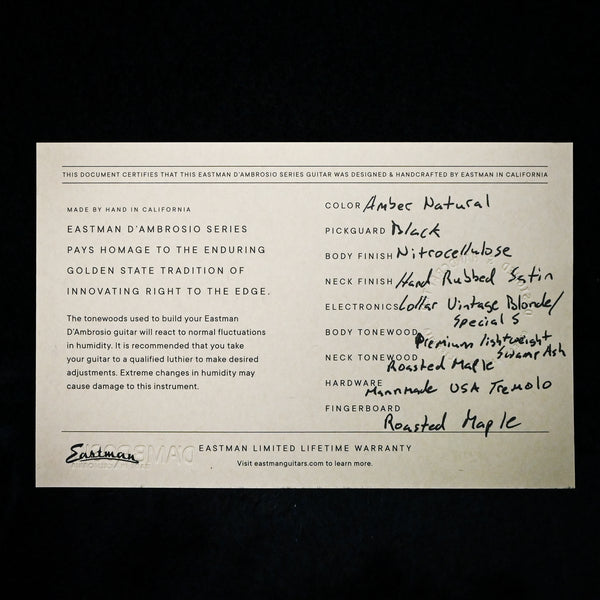 THIS DOCUMENT CERTIFIES THAT THIS EASTMAN D'AMBROSIO SERIES GUITAR WAS DESIGNED & HANDCRAFTED BY EASTMAN IN CALIFORNIA
MADE BY HAND IN CALIFORNIA
EASTMAN D'AMBROSIO SERIES
PAYS HOMAGE TO THE ENDURING
GOLDEN STATE TRADITION OF
INNOVATING RIGHT TO THE EDGE.
The tonewoods used to build your Eastman
D'Ambrosio guitar will react to normal fluctuations
in humidity. It is recommended that you take
your guitar to a qualified luthier to make desired
adjustments. Extreme changes in humidity may
cause damage to this instrument.
COLOR Amber Natural
PICKGUARD Black
BODY FINISH Nitrocellulose
NECK FINISH Hand Rubbed Satin
ELECTRONICS Lollar Vintage Blonde/
Special S
BODY TONEWOOD Premium lightweight
Swamp Ash
NECK TONEWOOD Roasted Maple
HARDWARE Mannmade USA Tremolo
FINGERBOARD Roasted Maple
Eastman
EASTMAN LIMITED LIFETIME WARRANTY
Visit eastmanguitars.com to learn more.